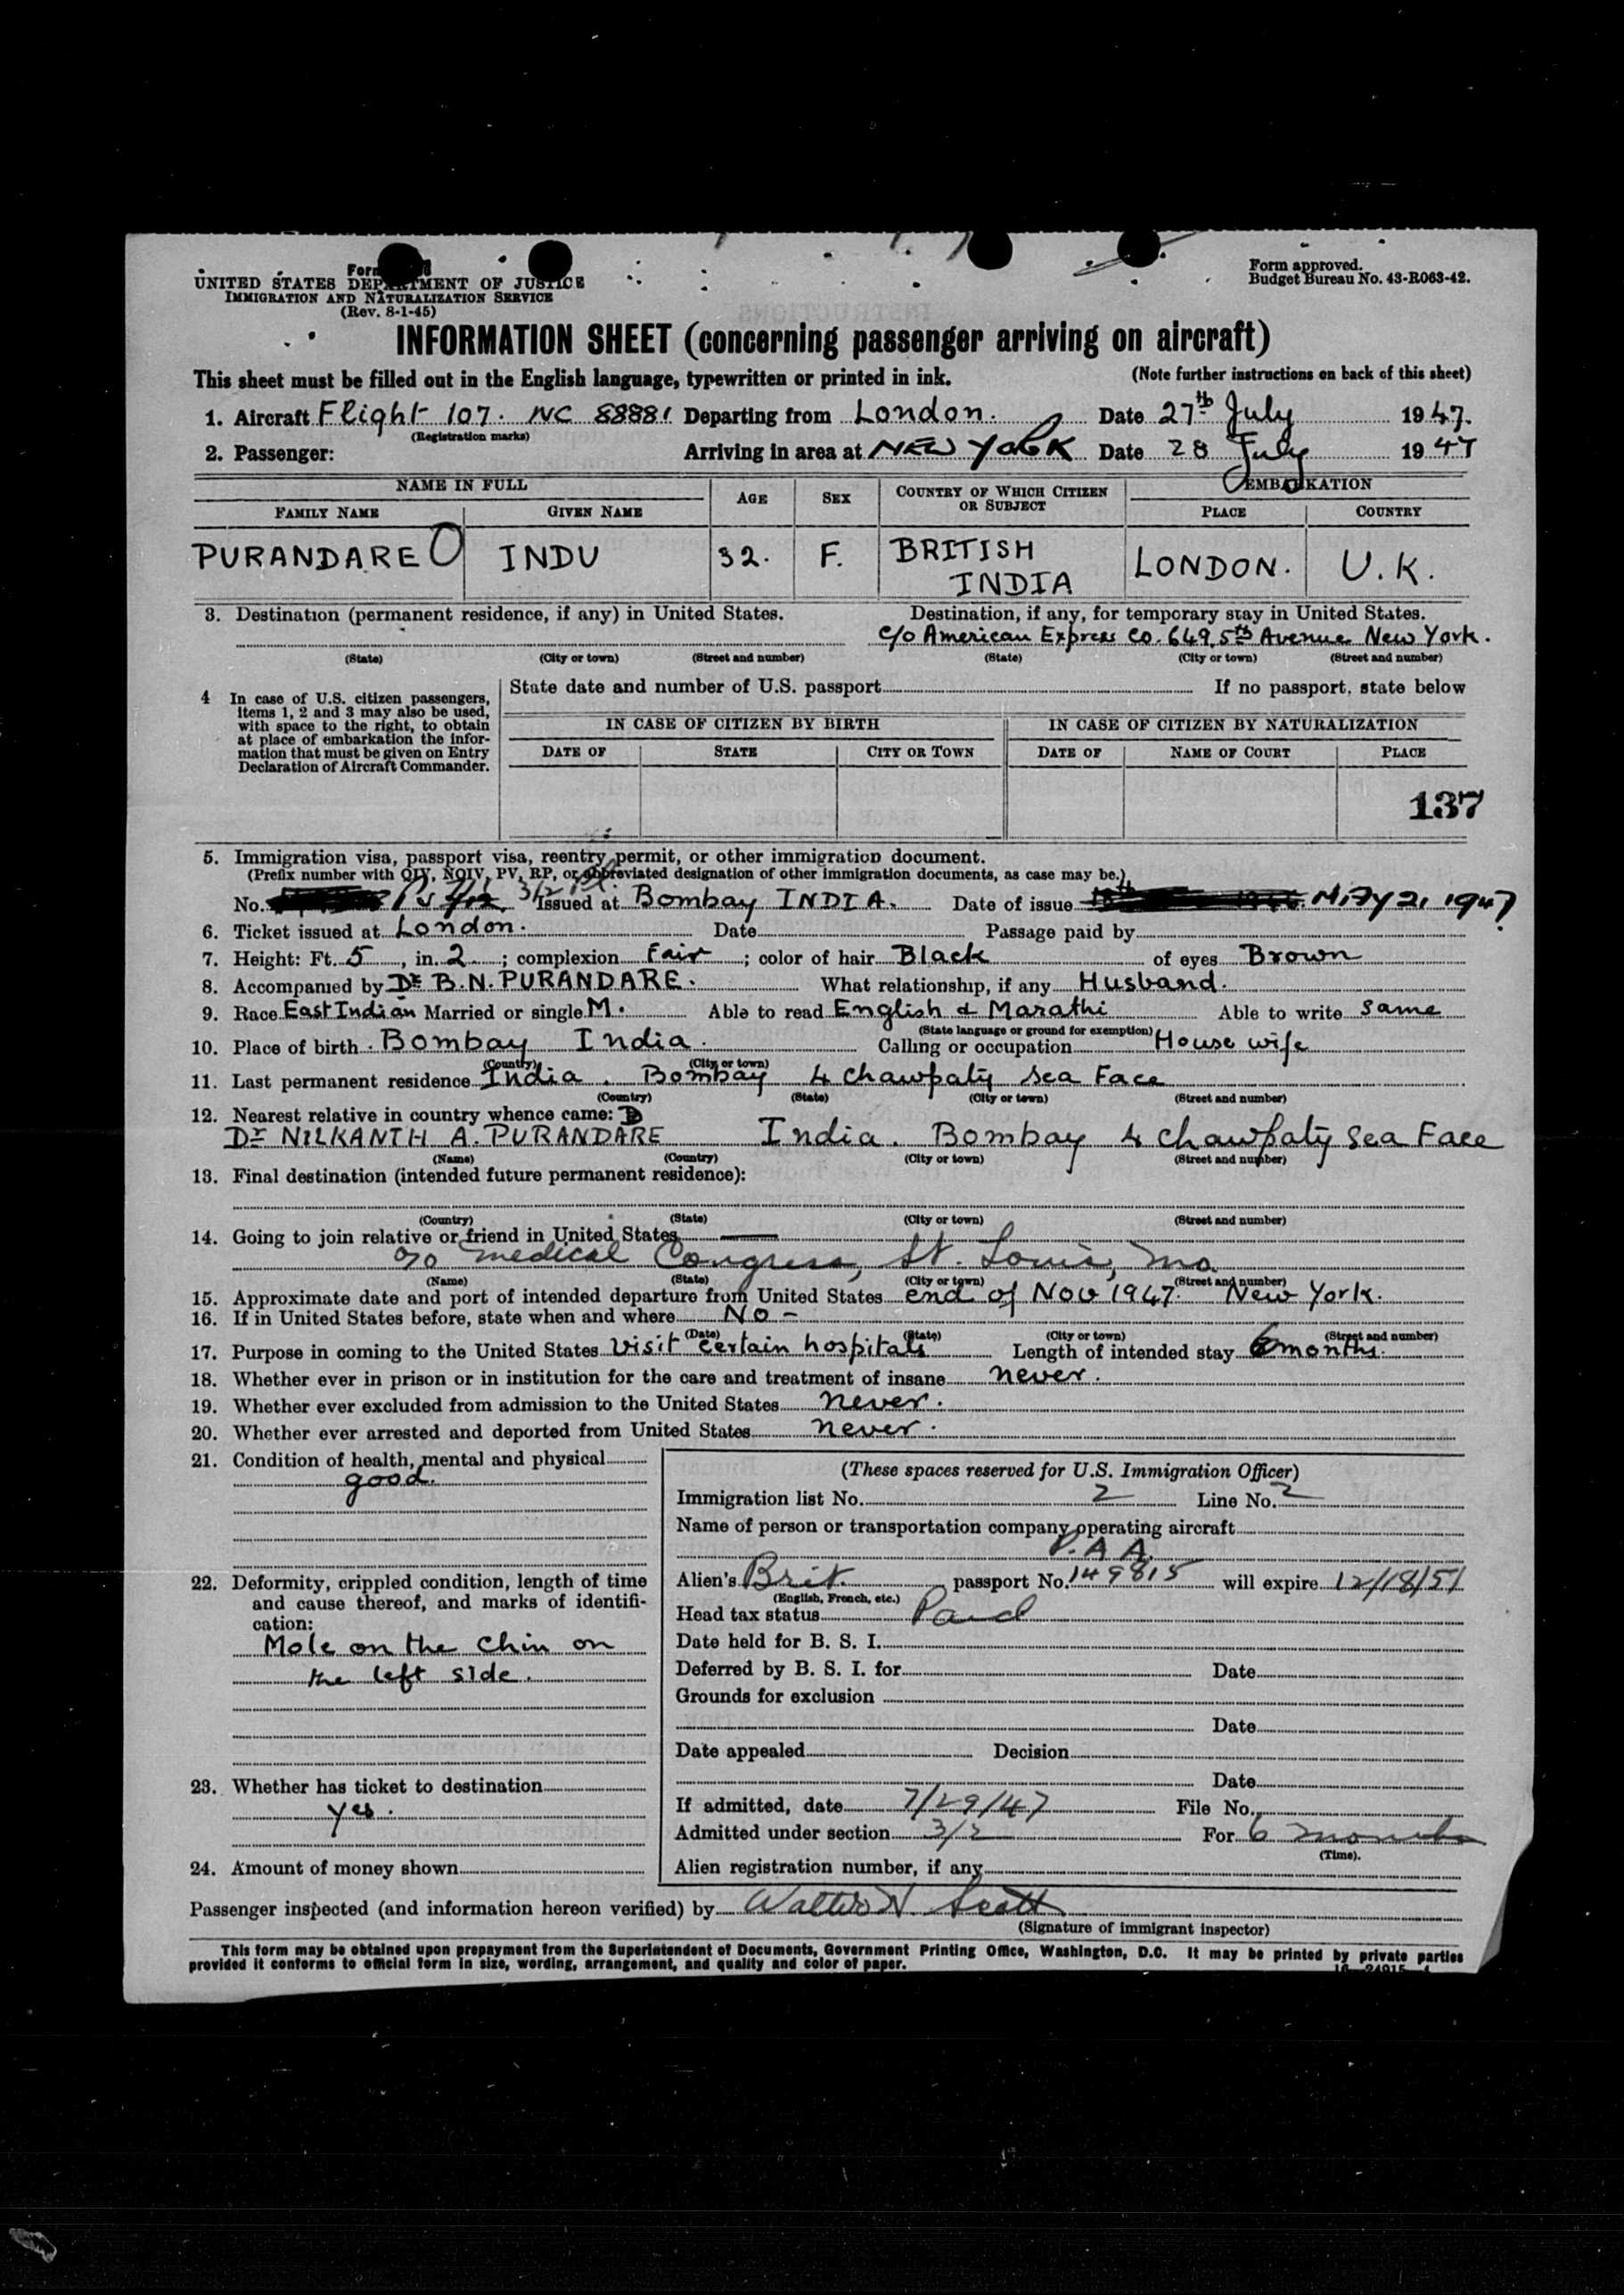 UNITED STATES DEPARTMENT OF JUSTICE
IMMIGRATION AND NATURALIZATION SERVICE
(Rev. 8-1-45)
Form approved.
Budget Bureau No. 43-R063-42.
INFORMATION SHEET (concerning passenger arriving on aircraft)
This sheet must be filled out in the English language, typewritten or printed in ink. (Note further instructions on back of this sheet)
1. Aircraft Flight 107. NC 88881 Departing from London. Date 27th July 1947.
(Registration marks)
2. Passenger: Arriving in area at NEW YORK Date 28 July 1947
NAME IN FULL AGE SEX COUNTRY OF WHICH CITIZEN OR SUBJECT EMBARKATION
FAMILY NAME GIVEN NAME PLACE COUNTRY
PURANDARE INDU 32. F. BRITISH INDIA LONDON. U.K.
3. Destination (permanent residence, if any) in United States. Destination, if any, for temporary stay in United States.
c/o American Express Co. 649, 5th Avenue New York.
(State) (City or town) (Street and number) (State) (City or town) (Street and number)
4 In case of U.S. citizen passengers, items 1, 2 and 3 may also be used, with space to the right, to obtain at place of embarkation the information that must be given on Entry Declaration of Aircraft Commander.
State date and number of U.S. passport If no passport, state below
IN CASE OF CITIZEN BY BIRTH IN CASE OF CITIZEN BY NATURALIZATION
DATE OF STATE CITY OR TOWN DATE OF NAME OF COURT PLACE
137
5. Immigration visa, passport visa, reentry permit, or other immigration document.
(Prefix number with QIV, NQIV, PV, RP, or abbreviated designation of other immigration documents, as case may be.)
No. 3/2 Issued at Bombay INDIA. Date of issue MAY 2, 1947
6. Ticket issued at London. Date Passage paid by
7. Height: Ft. 5, in. 2; complexion Fair; color of hair Black of eyes Brown
8. Accompanied by Dr B.N. PURANDARE. What relationship, if any Husband.
9. Race East Indian Married or single M. Able to read English & Marathi Able to write same
(State language or ground for exemption)
10. Place of birth Bombay India. Calling or occupation House wife
(Country) (City or town)
11. Last permanent residence India. Bombay 4 Chawpaty Sea Face
(Country) (State) (City or town) (Street and number)
12. Nearest relative in country whence came:
Dr NILKANTH A. PURANDARE India. Bombay 4 Chawpaty Sea Face
(Name) (Country) (City or town) (Street and number)
13. Final destination (intended future permanent residence):
(Country) (State) (City or town) (Street and number)
14. Going to join relative or friend in United States
c/o Medical Congress, St. Louis, Mo.
(Name) (State) (City or town) (Street and number)
15. Approximate date and port of intended departure from United States end of Nov 1947. New York.
16. If in United States before, state when and where No -
(Date) (State) (City or town) (Street and number)
17. Purpose in coming to the United States Visit certain hospitals Length of intended stay 6 months.
18. Whether ever in prison or in institution for the care and treatment of insane never.
19. Whether ever excluded from admission to the United States never.
20. Whether ever arrested and deported from United States never.
21. Condition of health, mental and physical
good.
22. Deformity, crippled condition, length of time and cause thereof, and marks of identification:
Mole on the chin on
the left side.
23. Whether has ticket to destination
yes.
24. Amount of money shown
(These spaces reserved for U.S. Immigration Officer)
Immigration list No. 2 Line No. 2
Name of person or transportation company operating aircraft
P.A.A.
Alien's Brit. passport No. 149815 will expire 12/18/51
(English, French, etc.)
Head tax status Paid
Date held for B. S. I.
Deferred by B. S. I. for Date
Grounds for exclusion
Date
Date appealed Decision
Date
If admitted, date 7/29/47 File No.
Admitted under section 3/2 For 6 months
(Time).
Alien registration number, if any
Passenger inspected (and information hereon verified) by Walter N. Scott
(Signature of immigrant inspector)
This form may be obtained upon prepayment from the Superintendent of Documents, Government Printing Office, Washington, D.C. It may be printed by private parties
provided it conforms to official form in size, wording, arrangement, and quality and color of paper.